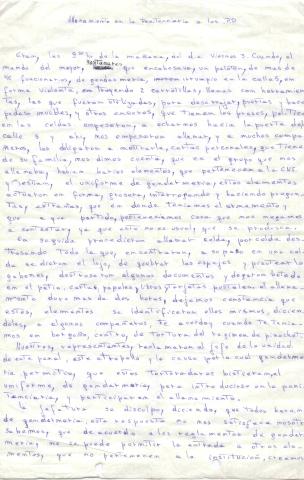 Allanamiento en la Penitenciaria a los PP
Eran, las 9 de la mañana, del dia Viernes 3. Cuando, el
mando del mayor, que encabezava, un peloton, de mas de
funcionarios, de gendarmeria, irrumpio en la calle 5, en
forma violenta, trayendo 2 carretillas, llenas con herramien
tas, las que fueron utilizadas, para destrozar, puertas, y
muebles, y otros enseres, que tienen los presos, politicos
en las celdas empezaron, a echarnos hacia la puerta de la
calle 5 y ahi, nos empezaron allanar, y a muchos compa
ñeros, los obligaron a mostrarle, cartas personales, que tiene
de su familia, nos dimos cuenta, que en el grupo que nos
allanaba, habian varios elementos, que pertenecen a la CNI
y vestian, el uniforme de gendarmeria, estos elementos
actuaron en forma, grosera, y haciendo pregun
tas, extrañas, que en donde teniamos el armamento,
que a que partido, perteneciamos cosa que nos negamos
a contestar, ya que esto no es usual, que se produzca.
En seguida procedieron allanar celda, por celda des
trozando todo lo que, encontraron, a su paso en una cel
da se dieron el lujo, de quebrar los espejos, y
gabinetes, destrozaron algunos documentos y dejaron botado
en el patio, cartas, papeles y libros y tarjetas postales el allana
miento duro mas de dos horas, dejamos constancia que
estos, elementos se identificaron ellos mismos, dicien
doles, a algunos compañeros te acordas cuando te tenia
mos en borgoño, centro, de tortura del regimen de pinochet.
Nuestros, representantes, reclamaron al jefe de la unidad
de este penal, este atropello, y la causa por la cual gendarme
ria permitio, que estos torturadores vistieran, el
uniforme, de gendarmeria, para introducirse en la peni
tenciaria, y participaran en el allanamiento.
La jefatura se disculpo, diciendo, que todos eran
de gendarmeria, esta respuesta no nos satisface nosotros
sabemos, que de acuerdo a los reglamentos de gendar
meria, no se puede permitir la entrada a otros ele
mentos, que no pertenecen a la institución, creemos